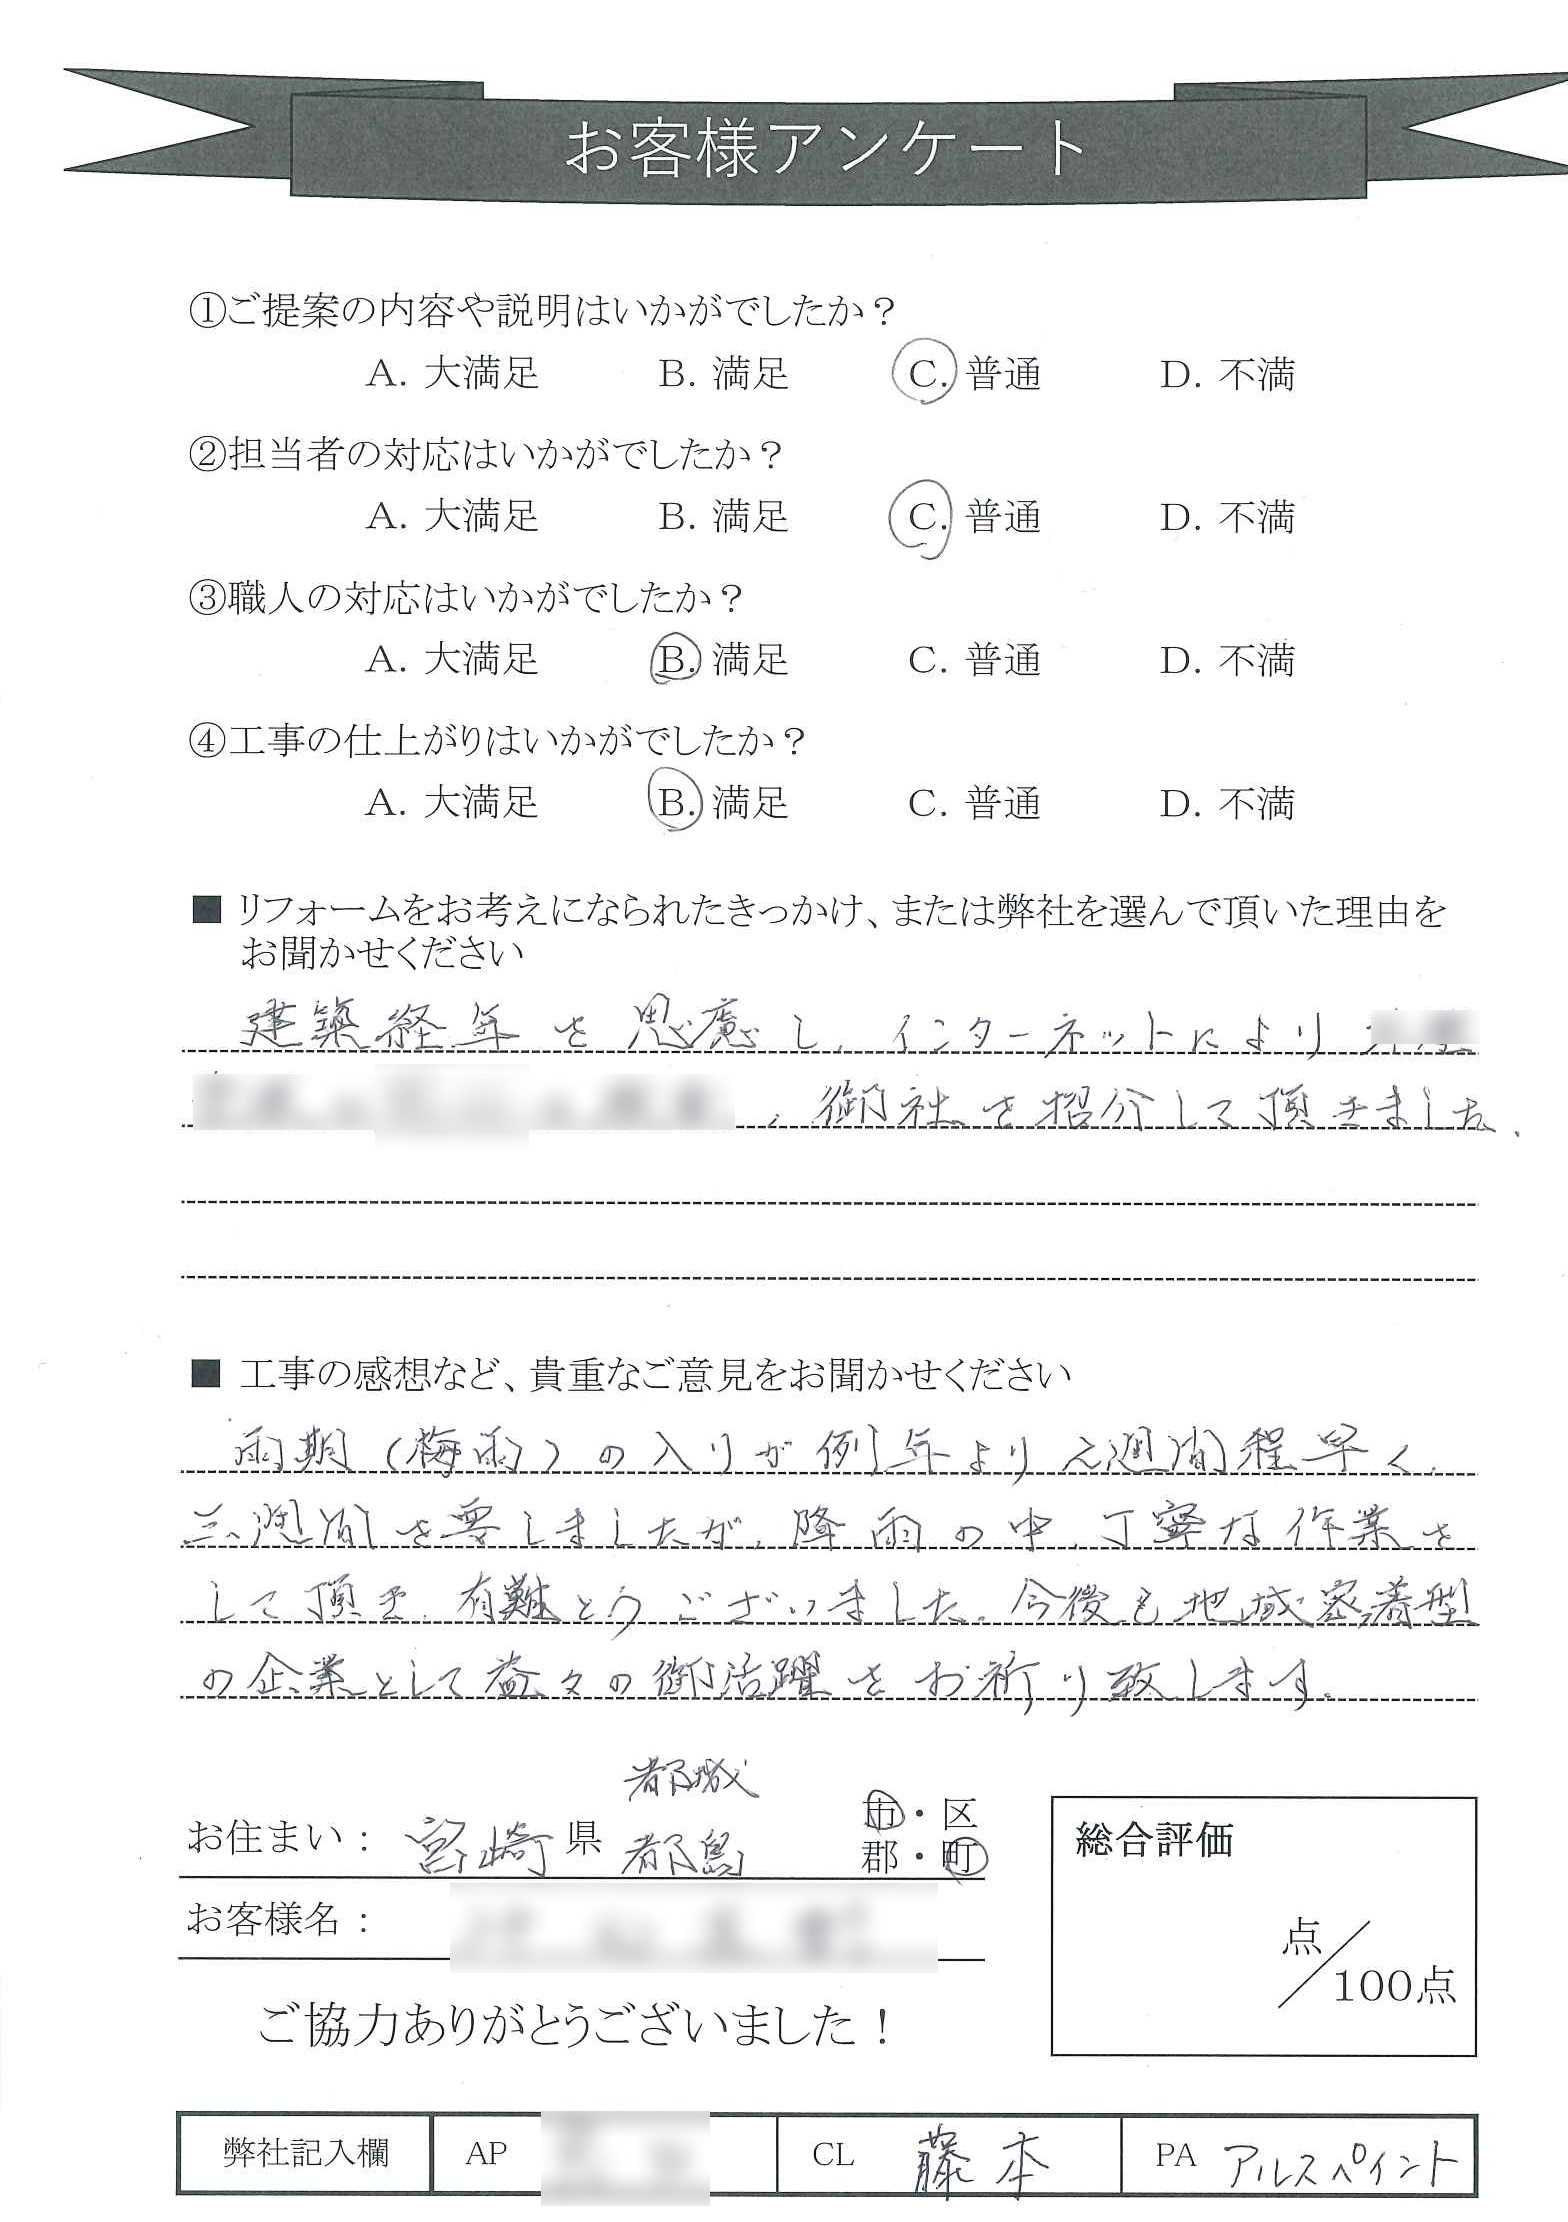 お客様アンケート
①ご提案の内容や説明はいかがでしたか？
A. 大満足 B. 満足 C. 普通 D. 不満
②担当者の対応はいかがでしたか？
A. 大満足 B. 満足 C. 普通 D. 不満
③職人の対応はいかがでしたか？
A. 大満足 B. 満足 C. 普通 D. 不満
④工事の仕上がりはいかがでしたか？
A. 大満足 B. 満足 C. 普通 D. 不満
■ リフォームをお考えになられたきっかけ、または弊社を選んで頂いた理由を
お聞かせください
建築経年を思慮し、インターネットにより
、御社を招介して頂きました.
■ 工事の感想など、貴重なご意見をお聞かせください
雨期（梅雨）の入りが例年より 週間程早く、
三週間を要しましたが、降雨の中、丁寧な作業を
して頂き、有難とうございました。今後も地域密着型
の企業として益々の御活躍をお祈り致します。
都城
お住まい： 宮崎 県 都島 市・区
郡・町
お客様名：
総合評価
点／100点
ご協力ありがとうございました！
弊社記入欄 AP CL 藤本 PA アルスペイント